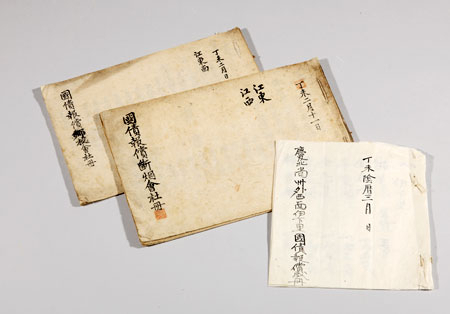 丁未二月日
江東面
國債報償斷烟會社冊
丁未二月十一日
江東
江西
國債報償斷烟會社冊
丁未陰曆三月 日
慶北尙州外西面伊下里國債報償冊